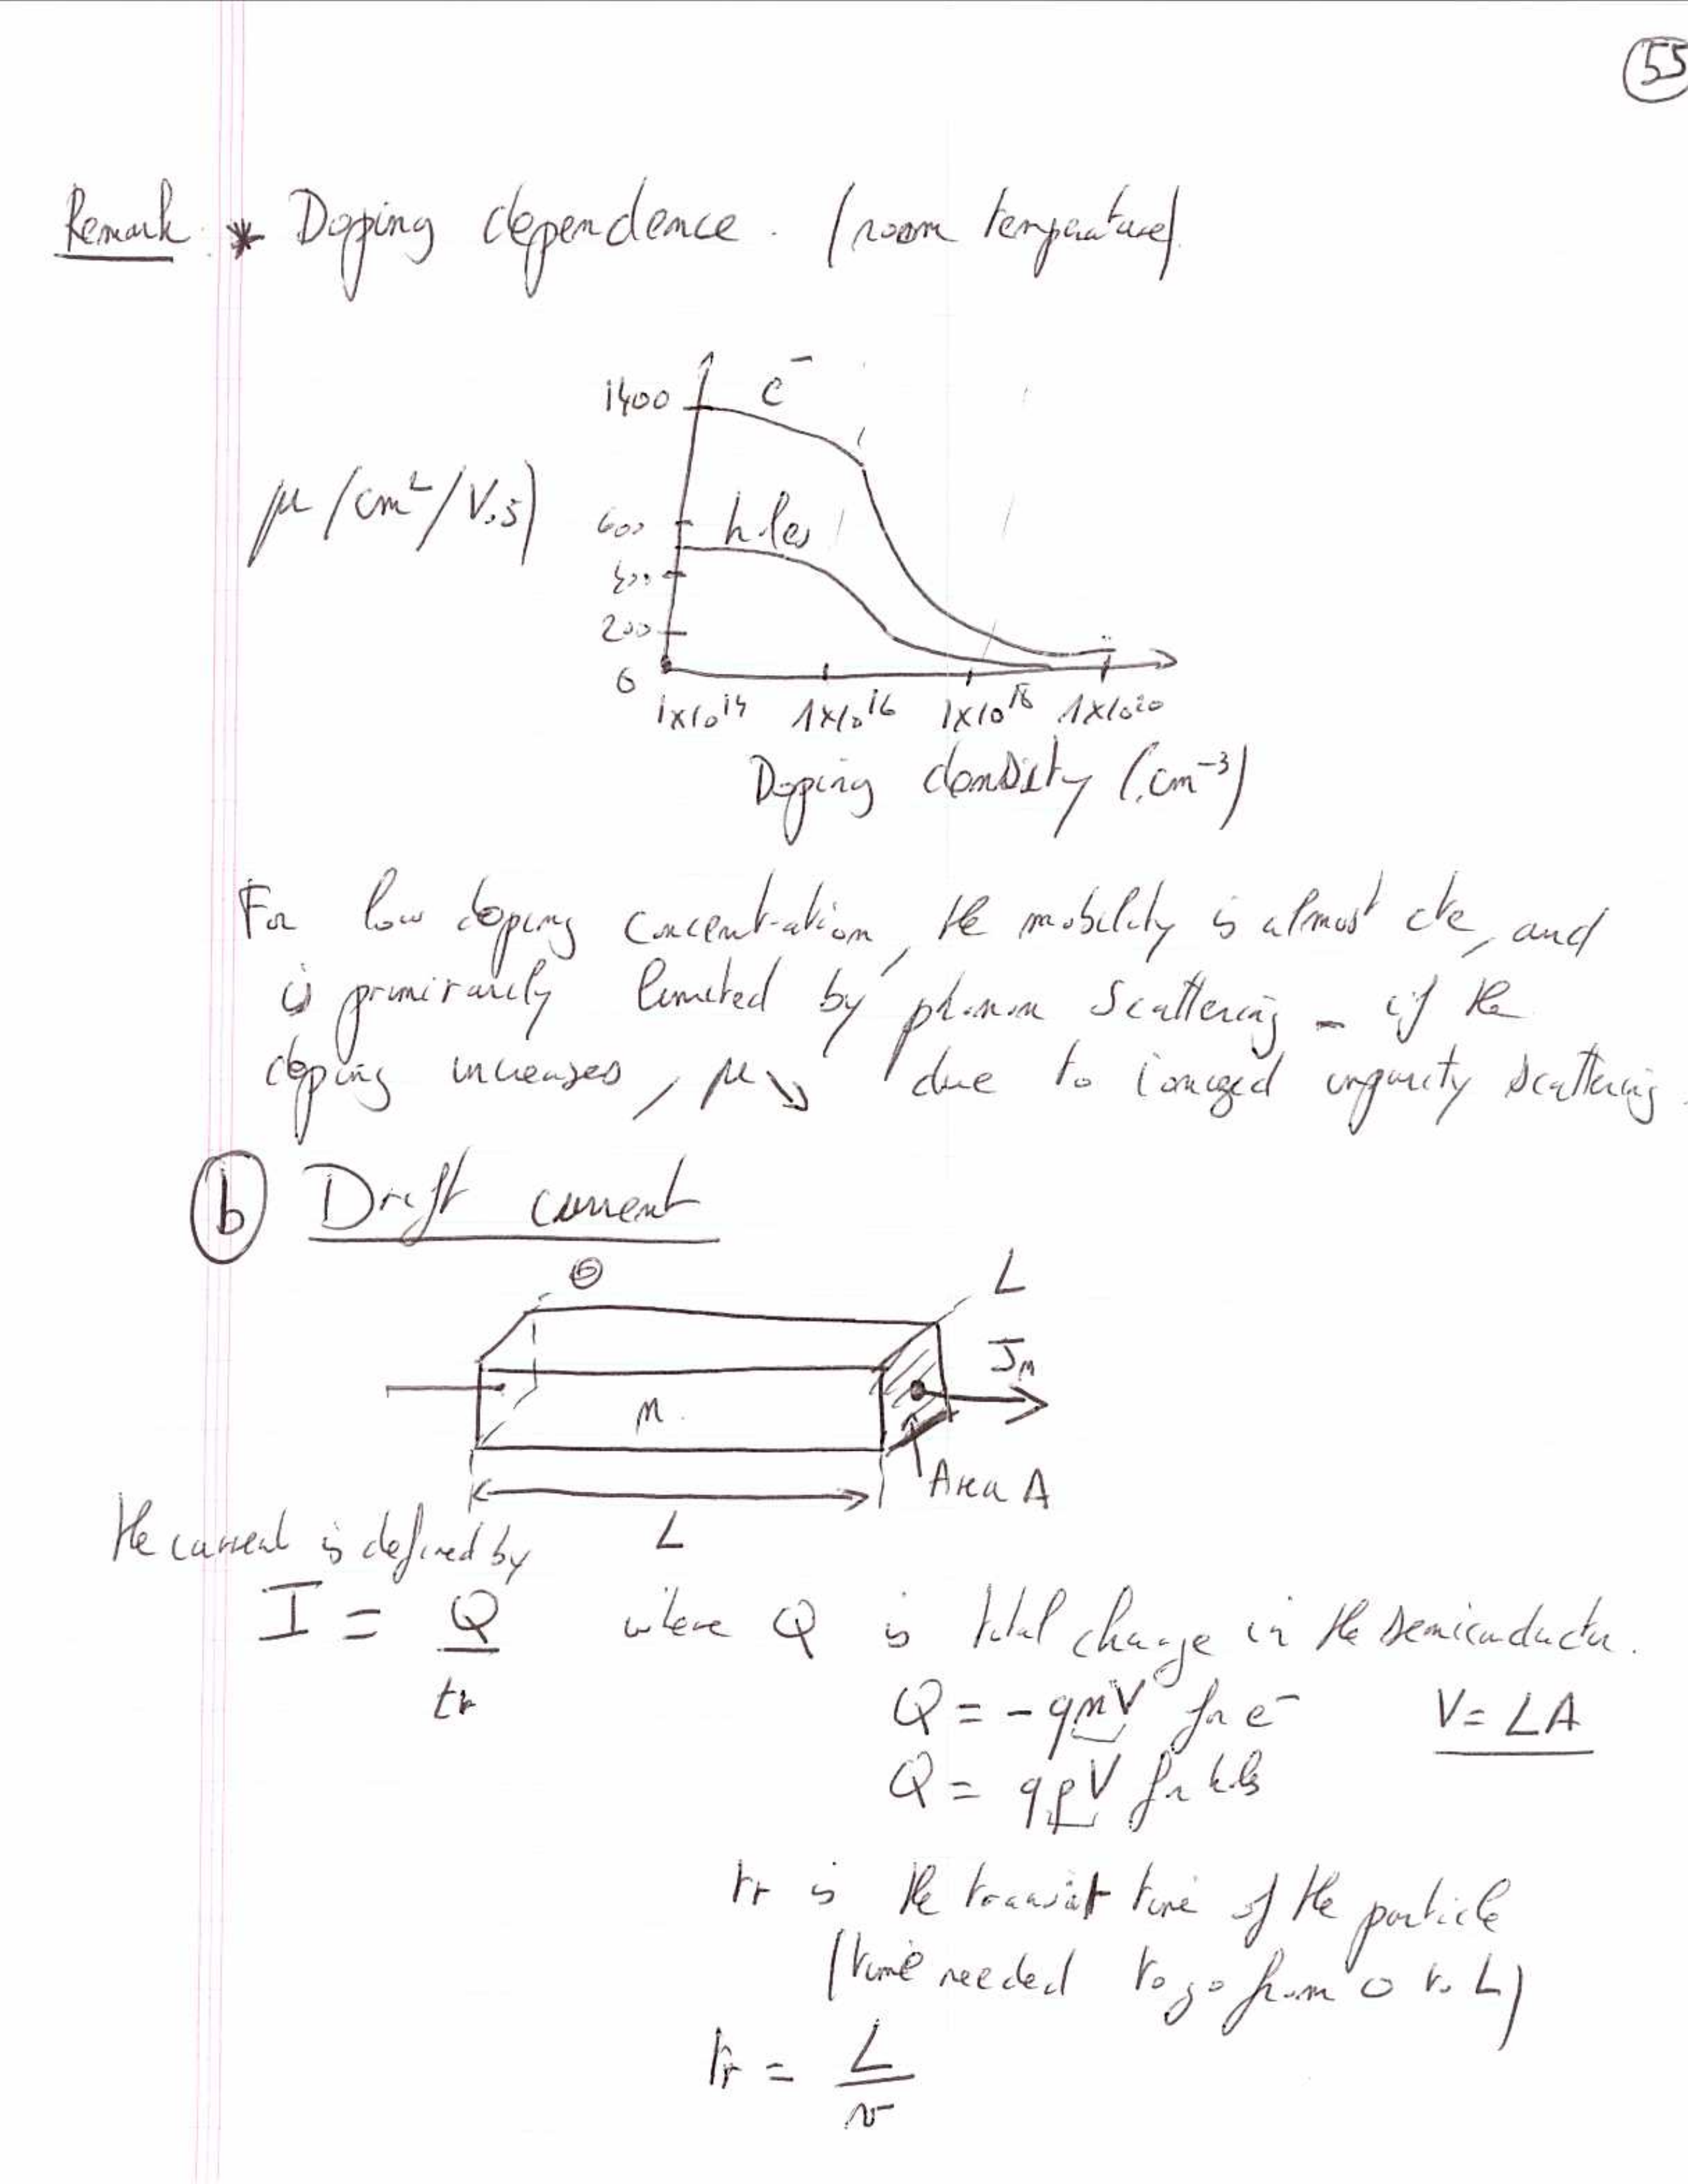 55
Remark : * Doping dependence. (room temperature)
1400 e⁻
μ (cm²/V.s)
600 holes
400
200
0
1x10¹⁴ 1x10¹⁶ 1x10¹⁸ 1x10²⁰
Doping density (cm⁻³)
For low doping concentration, the mobility is almost cte, and
is primirarily limited by phonon scattering - if the
doping increases, μ ↘ due to ionized impurity scattering.
b Drift current
0 L
Jn
n
Area A
L
the current is defined by
I = Q/tr where Q is total charge in the semiconductor.
Q = -qnV for e⁻ V = LA
Q = qpV for holes
tr is the transit time of the particle
(time needed to go from 0 to L)
tr = L/v